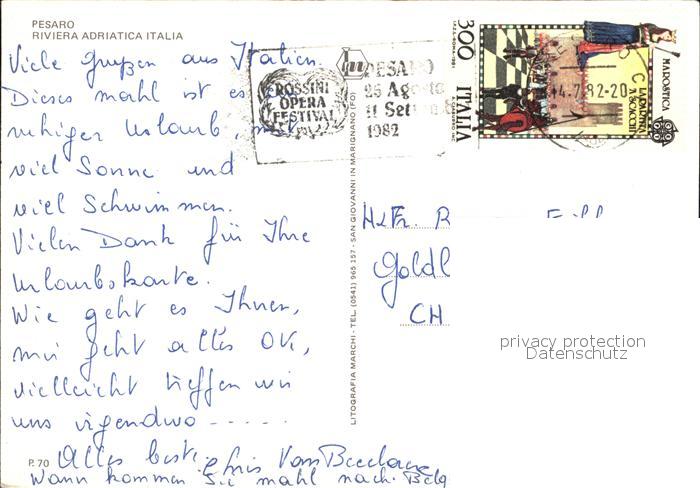 PESARO
RIVIERA ADRIATICA ITALIA
Viele Grußen aus Italien.
Dieses mahl ist es ein
ruhiger Urlaub, mit
viel Sonne und
viel Schwimmen.
Vielen Dank für Ihre
Urlaubskarte.
Wie geht es Ihnen,
mir geht alles OK,
vielleicht treffen wir
uns irgendwo - - - - -
Alles beste
Wann kommen Sie mahl nach Belg
P. 70
LITOGRAFIA MARCHI - TEL. (0541) 965 157 - SAN GIOVANNI IN MARIGNANO (FO)
ROSSINI
OPERA
FESTIVAL
PESARO
25 Agosto
11 Sett
1982
300 ITALIA
MAROSTICA
LA PARTITA
A SCACCHI
4.7.82-20
H+Fr. R
Goldl
CH
privacy protection
Datenschutz